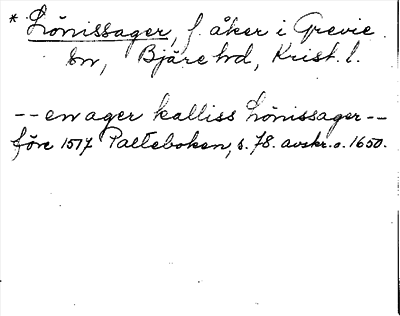 * Lönissager, f. åker i Grevie
sn, Bjäre hd, Krist. l.
-- en ager kalliss Lönissager --
före 1517 Palteboken, s. 78. avskr. o. 1650.